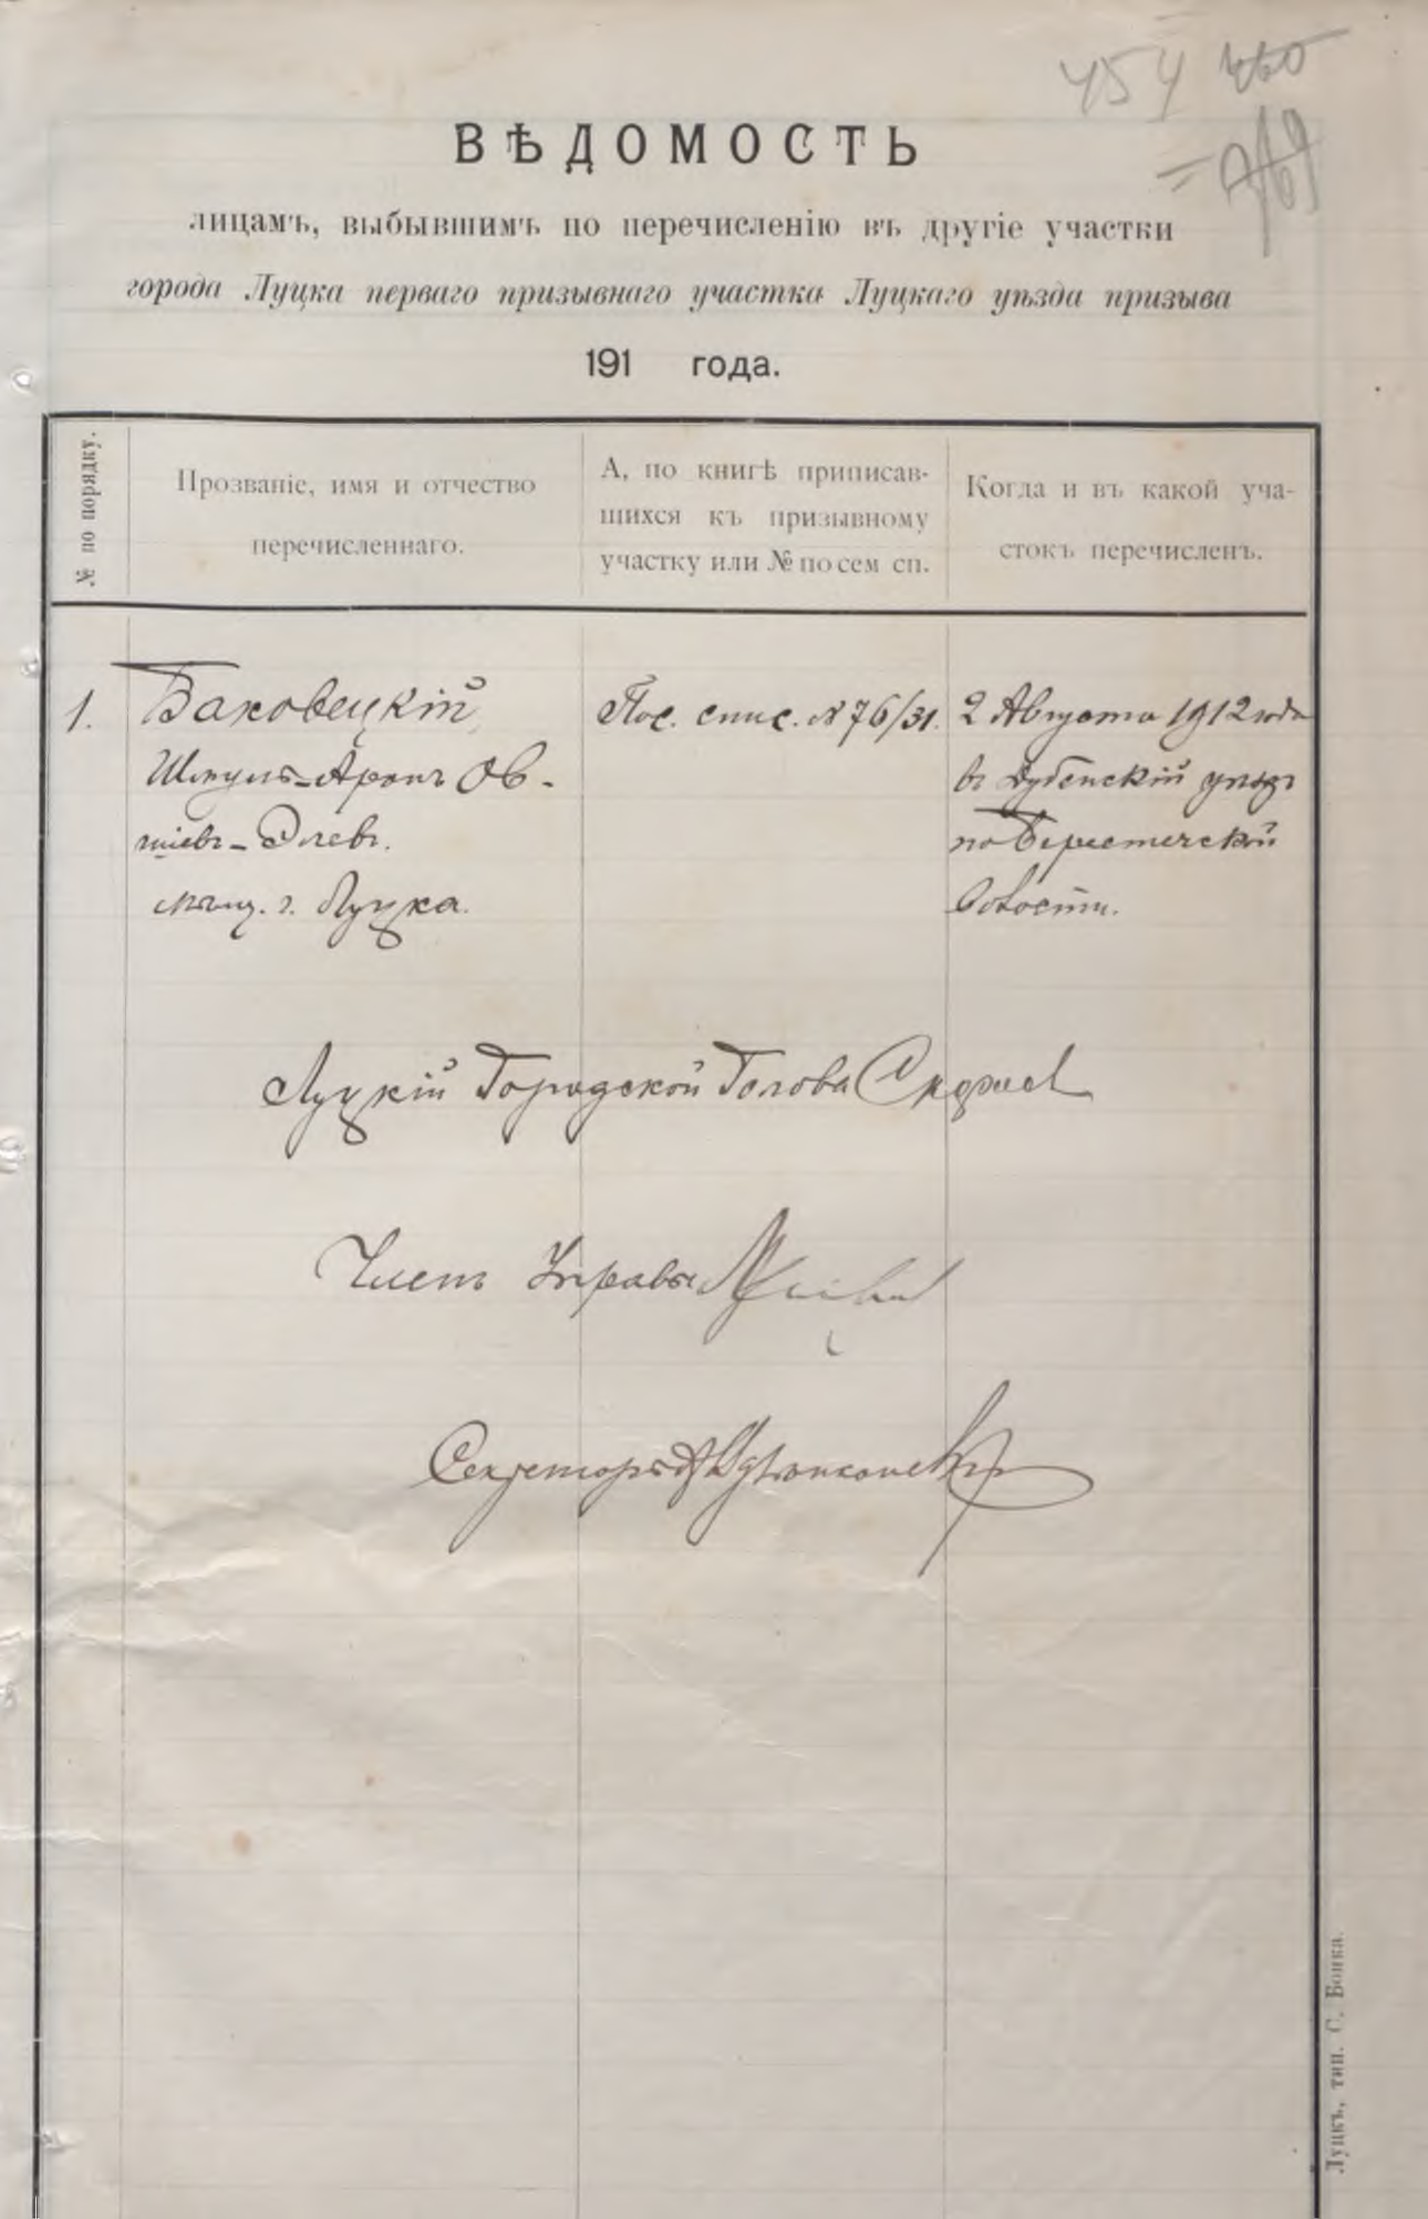 454
ВѢДОМОСТЬ
лицамъ, выбывшимъ по перечисленію въ другіе участки
города Луцка перваго призывнаго участка Луцкаго уѣзда призыва
191 года.
№ по порядку.
Прозваніе, имя и отчество
перечисленнаго.
А, по книгѣ приписав-
шихся къ призывному
участку или № по сем сп.
Когда и въ какой уча-
стокъ перечисленъ.
1.
Баковецкій
Шмуль-Аронъ Ов-
шіевъ-Элевъ.
мѣщ. г. Луцка.
Пос. спис. № 76/31.
2 Августа 1912 года
въ Дубенскій уѣздъ
по Берестечской
волости.
Луцкій Городской Голова
Членъ Управы
Секретарь
Луцкъ, тип. С. Бонка.